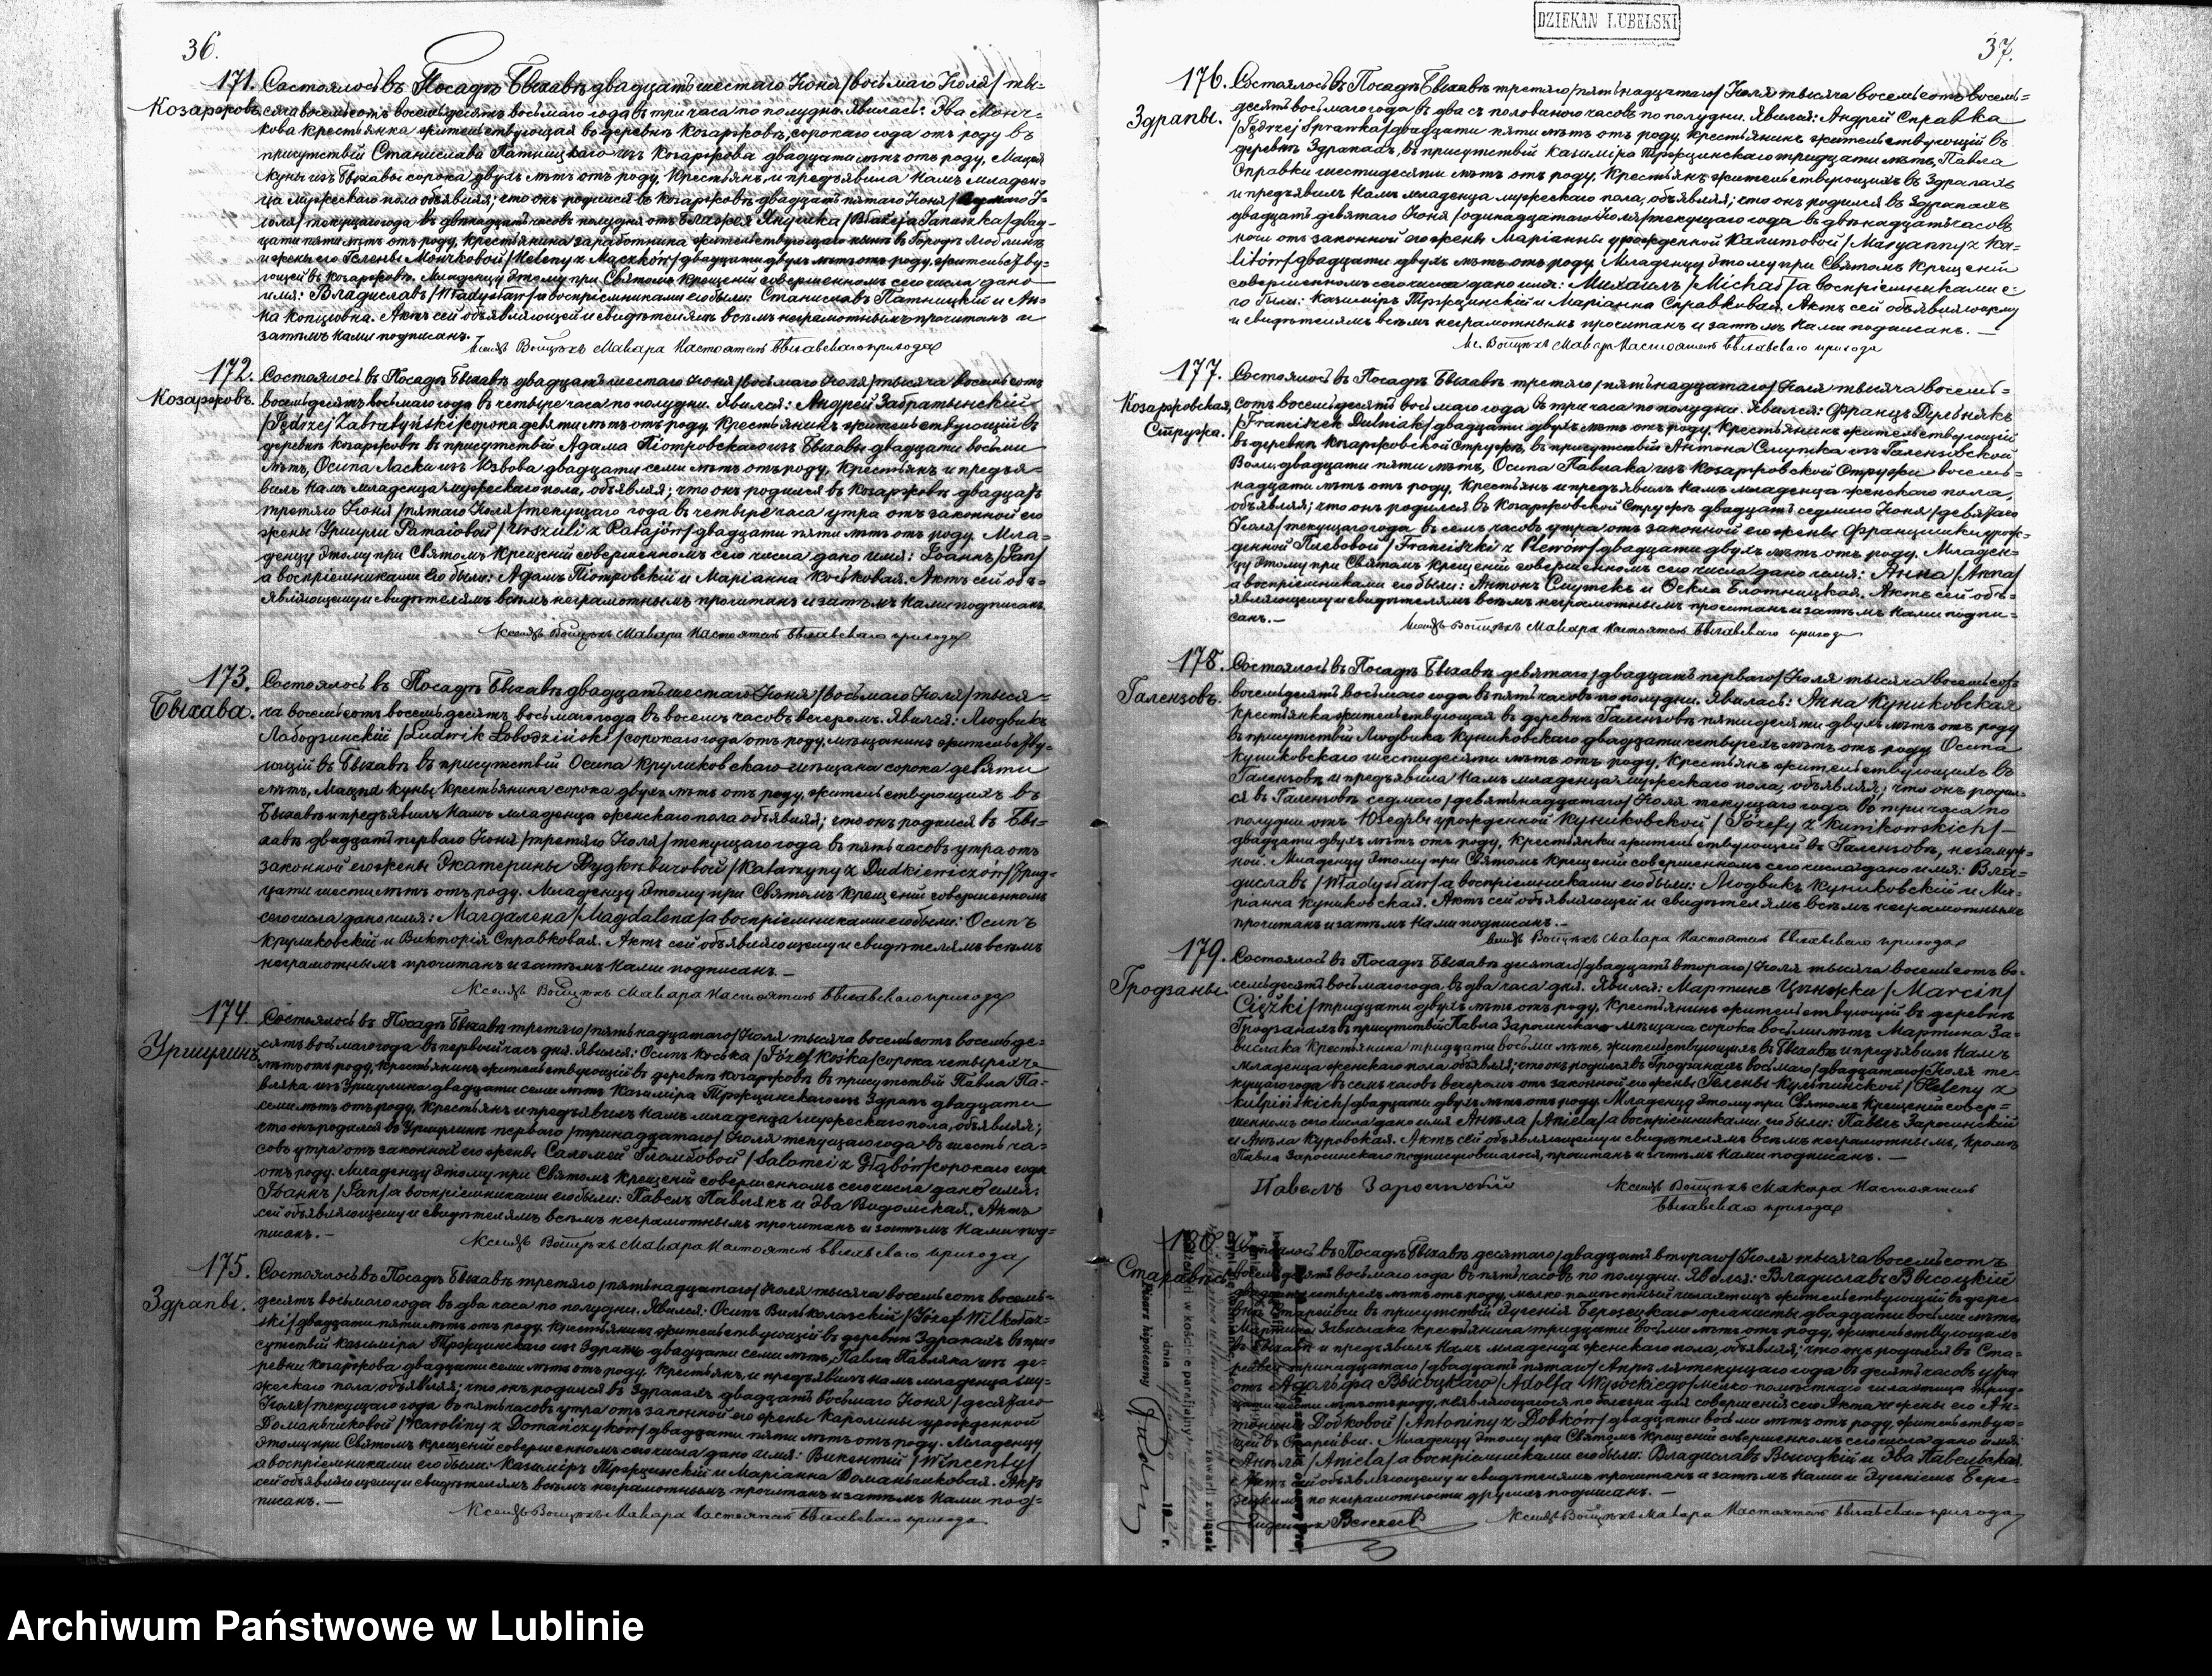 36.
171. Состоялось въ Посадѣ Быхавѣ двадцать шестаго Іюня /восьмаго Іюля/ ты-
Козаржовъ. сяча восемьсотъ восемьдесятъ восьмаго года въ три часа по полудни. Явилась: Эва Монч-
кова крестьянка жительствующая въ деревнѣ Козаржовѣ, сорока года отъ роду въ
присутствіи Станислава Пятницкаго изъ Козаржова двадцати лѣтъ отъ роду, Мацея
Куны изъ Быхавы сорока двухъ лѣтъ отъ роду, Крестьянъ, и предъявила Намъ младен-
ца мужескаго пола объявляя; что онъ родился въ Козаржовѣ двадцать пятаго Іюня
Іюля/ текущаго года въ двѣнадцать часовъ полудня отъ Блажея Янушка /Błażeja Januszka/ двад-
цати пяти лѣтъ отъ роду, Крестьянина заработника жительствующаго нынѣ въ Городѣ Люблинѣ
и жены его Гелены Мончковой /Heleny z Mączków/ двадцати двухъ лѣтъ отъ роду, жительству-
ющей въ Козаржовѣ. Младенцу этому при Святомъ Крещеніи совершенномъ сего числа дано
имя: Владиславъ /Władysław/ а воспріемниками его были: Станиславъ Пятницкій и Ан-
на Копцювна. Актъ сей объявляющей и свидѣтелямъ всѣмъ неграмотнымъ прочитанъ и
затѣмъ Нами подписанъ.
Ксендзъ Войцѣхъ Макара Настоятель Быхавскаго прихода
172. Состоялось въ Посадѣ Быхавѣ двадцать шестаго Іюня /восьмаго Іюля/ тысяча восемьсотъ
Козаржовъ. восемьдесятъ восьмаго года въ четыре часа по полудни. Явился: Андрей Забратынскій
/Jędrzej Zabratyński/ сорока девяти лѣтъ отъ роду, Крестьянинъ жительствующій въ
деревнѣ Козаржовѣ въ присутствіи Адама Піотровскаго изъ Быхавы двадцати восьми
лѣтъ, Осипа Ласки изъ двадцати семи лѣтъ отъ роду, Крестьянъ и предъя-
вилъ Намъ младенца мужескаго пола, объявляя; что онъ родился въ Козаржовѣ двадцать
третяго Іюня /пятаго Іюля/ текущаго года въ четыре часа утра отъ законной его
жены Уршули Ратаювой /Urszuli z Ratajów/ двадцати пяти лѣтъ отъ роду. Мла-
денцу этому при Святомъ Крещеніи совершенномъ сего числа дано имя: Іоаннъ /Jan/
а воспріемниками его были: Адамъ Піотровскій и Маріанна Коськовая. Актъ сей объ-
являющему и свидѣтелямъ всѣмъ неграмотнымъ прочитанъ и затѣмъ Нами подписанъ.
Ксендзъ Войцѣхъ Макара Настоятель Быхавскаго прихода
173. Состоялось въ Посадѣ Быхавѣ двадцать шестаго Іюня /восьмаго Іюля/ тыся-
Быхава. ча восемьсотъ восемьдесятъ восьмаго года въ восемь часовъ вечеромъ. Явился: Людвикъ
Лободзинскій /Ludwik Łobodziński/ сорока года отъ роду, мѣщанинъ жительству-
ющій въ Быхавѣ въ присутствіи Осипа Круликовскаго мѣщана сорока девяти
лѣтъ, Мацея Куны Крестьянина сорока двухъ лѣтъ отъ роду, жительствующихъ въ
Быхавѣ и предъявилъ Намъ младенца женскаго пола объявляя; что онъ родился въ Бы-
хавѣ двадцать перваго Іюня /третяго Іюля/ текущаго года въ пять часовъ утра отъ
законной его жены Екатерины Дудкѣвичовой /Katarzyny z Dudkiewiczów/ трид-
цати шести лѣтъ отъ роду. Младенцу этому при Святомъ Крещеніи совершенномъ
сего числа дано имя: Магдалена /Magdalena/ а воспріемниками его были: Осипъ
Круликовскій и Викторія Справковая. Актъ сей объявляющему и свидѣтелямъ всѣмъ
неграмотнымъ прочитанъ и затѣмъ Нами подписанъ.—
Ксендзъ Войцѣхъ Макара Настоятель Быхавскаго прихода
174. Состоялось въ Посадѣ Быхавѣ третяго /пятьнадцатаго/ Іюля тысяча восемьсотъ восемьде-
Уршулинъ. сятъ восьмаго года въ первый часъ дня. Явился: Осипъ Коська /Józef Kośka/ сорока четырехъ
лѣтъ отъ роду, Крестьянинъ жительствующій въ деревнѣ Козаржовѣ въ присутствіи Павла Па-
вляка изъ Уршулина двадцати семи лѣтъ Казиміра Тржцинскаго изъ Здрапъ двадцати
семи лѣтъ отъ роду, Крестьянъ и предъявилъ Намъ младенца мужескаго пола, объявляя;
что онъ родился въ Уршулинѣ перваго /тринадцатаго/ Іюля текущаго года въ шесть ча-
совъ утра отъ законной его жены Саломеи Гломбовой /Salomei z Głąbów/ сорока года
отъ роду. Младенцу этому при Святомъ Крещеніи совершенномъ сего числа дано имя:
Іоаннъ /Jan/ а воспріемниками его были: Павелъ Павлякъ и Эва Видомская. Актъ
сей объявляющему и свидѣтелямъ всѣмъ неграмотнымъ прочитанъ и затѣмъ Нами под-
писанъ.—
Ксендзъ Войцѣхъ Макара Настоятель Быхавскаго прихода
175. Состоялось въ Посадѣ Быхавѣ третяго /пятьнадцатаго/ Іюля тысяча восемьсотъ восемь-
Здрапы. десятъ восьмаго года въ два часа по полудни. Явился: Осипъ Вильколазскій /Józef Wilkołaz-
ski/ двадцати пяти лѣтъ отъ роду, Крестьянинъ жительствующій въ деревнѣ Здрапахъ въ при-
сутствіи Казиміра Тржцинскаго изъ Здрапъ двадцати семи лѣтъ, Павла Павляка изъ де-
ревни Козаржова двадцати семи лѣтъ отъ роду, Крестьянъ, и предъявилъ намъ младенца му-
жескаго пола, объявляя; что онъ родился въ Здрапахъ двадцать восьмаго Іюня /десятаго
Іюля/ текущаго года въ пять часовъ утра отъ законной его жены Каролины урожденной
Доманьчиковой /Karoliny z Domańczyków/ двадцати пяти лѣтъ отъ роду. Младенцу
этому при Святомъ Крещеніи совершенномъ сего числа дано имя: Викентій /Wincenty/
а воспріемниками его были: Казиміръ Тржцинскій и Маріанна Доманьчиковая. Актъ
сей объявляющему и свидѣтелямъ всѣмъ неграмотнымъ прочитанъ и затѣмъ Нами под-
писанъ.—
Ксендзъ Войцѣхъ Макара Настоятель Быхавскаго прихода
DZIEKAN LUBELSKI
37.
176. Состоялось въ Посадѣ Быхавѣ третяго /пятьнадцатаго/ Іюля тысяча восемьсотъ восемь-
Здрапы. десятъ восьмаго года въ два съ половиною часовъ по полудни. Явился: Андрей Справка
/Jędrzej Sprawka/ двадцати пяти лѣтъ отъ роду, Крестьянинъ жительствующій въ
деревнѣ Здрапахъ, въ присутствіи Казиміра Тржцинскаго тридцати лѣтъ, Павла
Справки шестидесяти лѣтъ отъ роду, Крестьянъ жительствующихъ въ Здрапахъ
и предъявилъ Намъ младенца мужескаго пола, объявляя; что онъ родился въ Здрапахъ
двадцать девятаго Іюня /одинадцатаго Іюля/ текущаго года въ двѣнадцать часовъ
ночи отъ законной его жены Маріанны урожденной Калитовой /Maryanny z Ka-
litów/ двадцати двухъ лѣтъ отъ роду. Младенцу этому при Святомъ Крещеніи
совершенномъ сего числа дано имя: Михаилъ /Michał/ а воспріемниками е-
го были: Казиміръ Тржцинскій и Маріанна Справковая. Актъ сей объявляющему
и свидѣтелямъ всѣмъ неграмотнымъ прочитанъ и затѣмъ Нами подписанъ.—
Кс. Войцѣхъ Макара Настоятель Быхавскаго прихода
177. Состоялось въ Посадѣ Быхавѣ третяго /пятьнадцатаго/ Іюля тысяча восемь-
Козаржовская Стружа. сотъ восемьдесятъ восьмаго года въ три часа по полудни. Явился: Францъ Дульнякъ
/Franciszek Dulniak/ двадцати двухъ лѣтъ отъ роду, Крестьянинъ жительствующій
въ деревнѣ Козаржовской Стружѣ, въ присутствіи Антона Смутка изъ Галензовской
Воли двадцати пяти лѣтъ, Осипа Павлака изъ Козаржовской Стружи восемь-
надцати лѣтъ отъ роду, Крестьянъ и предъявилъ Намъ младенца женскаго пола,
объявляя; что онъ родился въ Козаржовской Стружѣ двадцать седмаго Іюня /девятаго
Іюля/ текущаго года въ семь часовъ утра отъ законной его жены Францишки урож-
денной Плевовой /Franciszki z Plewów/ двадцати двухъ лѣтъ отъ роду. Младен-
цу этому при Святомъ Крещеніи совершенномъ сего числа дано имя: Анна /Anna/
а воспріемниками его были: Антонъ Смутекъ и Ѳекла Блотницкая. Актъ сей объ-
являющему и свидѣтелямъ всѣмъ неграмотнымъ прочитанъ и затѣмъ Нами подпи-
санъ.—
Ксендзъ Войцѣхъ Макара Настоятель Быхавскаго прихода
178. Состоялось въ Посадѣ Быхавѣ девятаго /двадцать перваго/ Іюля тысяча восемьсотъ
Галензовъ. восемьдесятъ восьмаго года въ пять часовъ по полудни. Явилась: Анна Куниковская
Крестьянка жительствующая въ деревнѣ Галензовѣ пятидесяти двухъ лѣтъ отъ роду
въ присутствіи Людвика Куниковскаго двадцати четырехъ лѣтъ отъ роду Осипа
Куниковскаго шестидесяти лѣтъ отъ роду, Крестьянъ жительствующихъ въ
Галензовѣ и предъявила Намъ младенца мужескаго пола, объявляя; что онъ родил-
ся въ Галензовѣ седмаго /девятьнадцатаго/ Іюля текущаго года въ три часа по
полудни отъ Юзефы урожденной Куниковской /Józefy z Kunikowskich/
двадцати двухъ лѣтъ отъ роду, Крестьянки жительствующей въ Галензовѣ, незамуж-
ной. Младенцу этому при Святомъ Крещеніи совершенномъ сего числа дано имя: Вла-
диславъ /Władysław/ а воспріемниками его были: Людвикъ Куниковскій и Ма-
ріанна Куниковская. Актъ сей объявляющей и свидѣтелямъ всѣмъ неграмотнымъ
прочитанъ и затѣмъ Нами подписанъ.—
Ксендзъ Войцѣхъ Макара Настоятель Быхавскаго прихода
179. Состоялось въ Посадѣ Быхавѣ десятаго /двадцать втораго/ Іюля тысяча восемьсотъ во-
Гродзаны. семьдесятъ восьмаго года, въ два часа дня. Явился: Мартинъ Цѣнжки /Marcin
Ciężki/ тридцати двухъ лѣтъ отъ роду, Крестьянинъ жительствующій въ деревнѣ
Гродзанахъ въ присутствіи Павла Заросинскаго мѣщана сорока восьми лѣтъ Мартина За-
вислака Крестьянина тридцати восьми лѣтъ, жительствующихъ въ Быхавѣ и предъявилъ Намъ
младенца женскаго пола объявляя; что онъ родился въ Гродзанахъ восьмаго /двадцатаго/ Іюля те-
кущаго года въ семь часовъ вечеромъ отъ законной его жены Гелены Кульпинской /Heleny z
Kulpińskich/ двадцати двухъ лѣтъ отъ роду. Младенцу этому при Святомъ Крещеніи совер-
шенномъ сего числа дано имя Анѣла /Aniela/ а воспріемниками его были: Павелъ Заросинскій
и Анѣла Куровская. Актъ сей объявляющему и свидѣтелямъ всѣмъ неграмотнымъ, кромѣ
Павла Заросинскаго подписующагося, прочитанъ и затѣмъ Нами подписанъ.—
Павелъ Заросинскій
Ксендзъ Войцѣхъ Макара Настоятель
Быхавскаго прихода
180. Состоялось въ Посадѣ Быхавѣ десятаго /двадцать втораго/ Іюля тысяча восемьсотъ
восемьдесятъ восьмаго года въ пять часовъ по полудни. Явился: Владиславъ Высоцкій
двадцати четырехъ лѣтъ отъ роду, мелкопомѣстный шляхтичъ жительствующій въ дерев-
въ присутствіи Евгенія Березецкаго органисты двадцати восьми лѣтъ
Мартина Завислака крестьянина тридцати восьми лѣтъ отъ роду, жительствующихъ
въ Быхавѣ и предъявилъ Намъ младенца женскаго пола, объявляя; что онъ родился въ Ста-
тринадцатаго /двадцать пятаго/ Апрѣля текущаго года въ десять часовъ утра
отъ Адольфа Высоцкаго /Adolfa Wysockiego/ мелкопомѣстнаго шляхтича трид-
цати шести лѣтъ отъ роду, неявляющагося по болезни для совершенія сего Акта и жены его Ан-
тонины Добковой /Antoniny z Dobków/ двадцати восьми лѣтъ отъ роду, жительствую-
Младенцу этому при Святомъ Крещеніи совершенномъ сего числа дано имя:
Анѣла /Aniela/ а воспріемниками его были: Владиславъ Высоцкій и Эва Павелская.
Актъ сей объявляющему и свидѣтелямъ прочитанъ и затѣмъ Нами и Евгеніемъ Бере-
зецкимъ по неграмотности другихъ подписанъ.—
Ксендзъ Войцѣхъ Макара Настоятель Быхавскаго прихода
w kościele parafjalnym
zawarli związek
Pisarz hipoteczny
dnia
Archiwum Państwowe w Lublinie